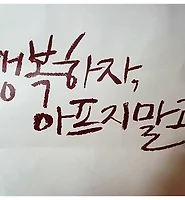 행복하자,
아프지말고